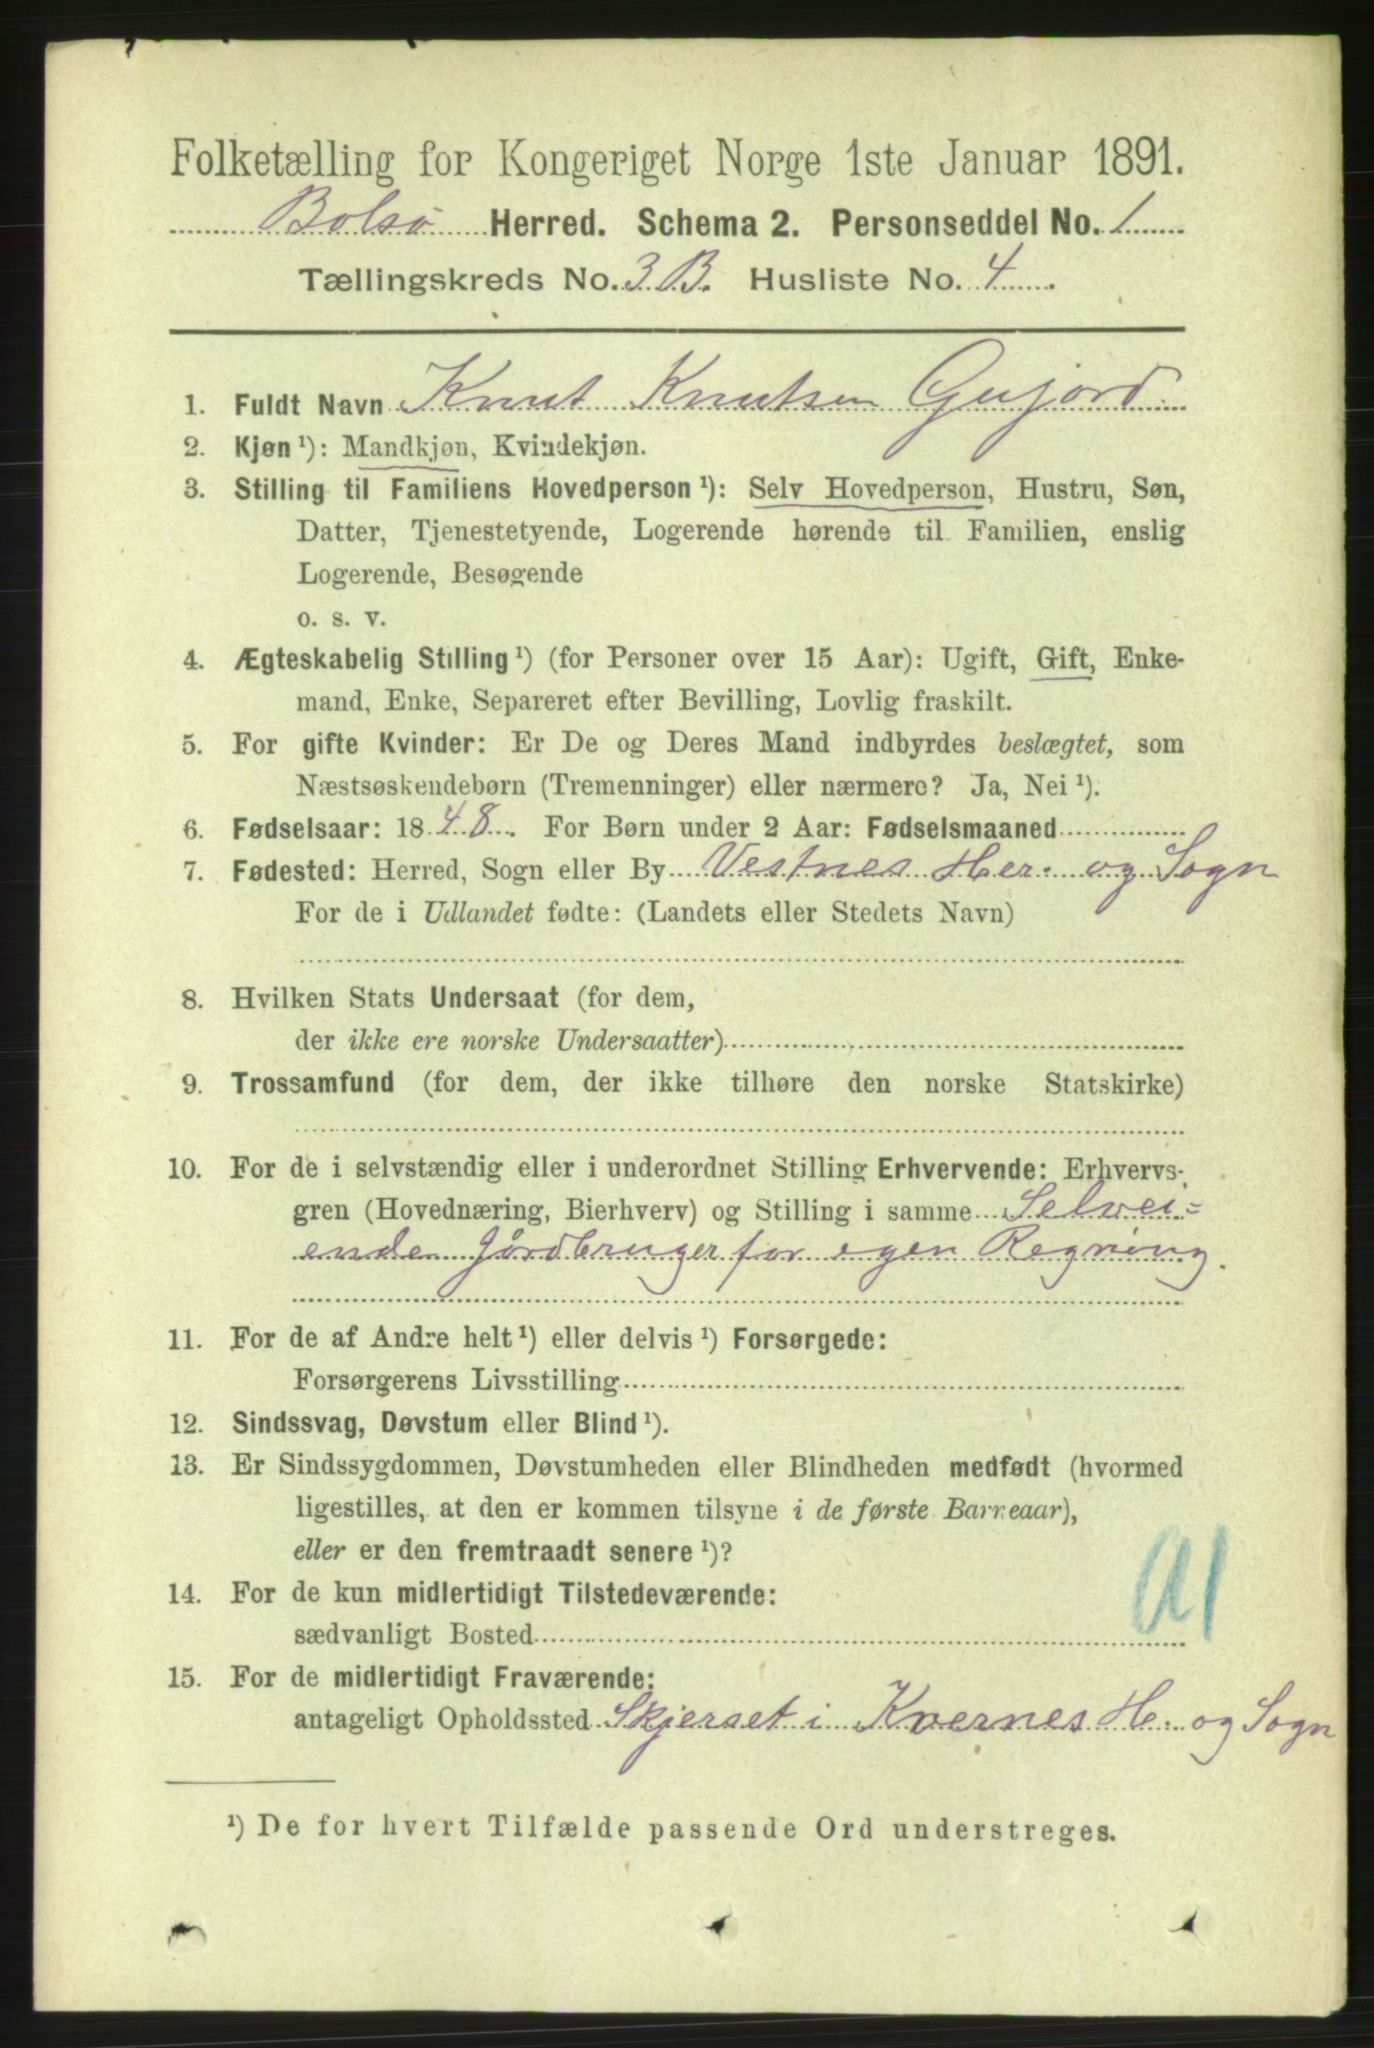 Folketælling for Kongeriget Norge 1ste Januar 1891.
Bolsø Herred. Schema 2. Personseddel No. 1
Tællingskreds No. 3 B. Husliste No. 4
1. Fuldt Navn Knut Knutsen Gujord
2. Kjøn ¹): Mandkjøn, Kvindekjøn.
3. Stilling til Familiens Hovedperson ¹): Selv Hovedperson, Hustru, Søn,
Datter, Tjenestetyende, Logerende hørende til Familien, enslig
Logerende, Besøgende
o. s. v.
4. Ægteskabelig Stilling ¹) (for Personer over 15 Aar): Ugift, Gift, Enke-
mand, Enke, Separeret efter Bevilling, Lovlig fraskilt.
5. For gifte Kvinder: Er De og Deres Mand indbyrdes beslægtet, som
Næstsøskendebørn (Tremenninger) eller nærmere? Ja, Nei ¹).
6. Fødselsaar: 1848. For Børn under 2 Aar: Fødselsmaaned
7. Fødested: Herred, Sogn eller By Vestnes Her. og Sogn
For de i Udlandet fødte: (Landets eller Stedets Navn)
8. Hvilken Stats Undersaat (for dem,
der ikke ere norske Undersaatter)
9. Trossamfund (for dem, der ikke tilhøre den norske Statskirke)
10. For de i selvstændig eller i underordnet Stilling Erhvervende: Erhvervs-
gren (Hovednæring, Bierhverv) og Stilling i samme Selvei=
ende Jordbruger for egen Regning.
11. For de af Andre helt ¹) eller delvis ¹) Forsørgede:
Forsørgerens Livsstilling
12. Sindssvag, Døvstum eller Blind ¹).
13. Er Sindssygdommen, Døvstumheden eller Blindheden medfødt (hvormed
ligestilles, at den er kommen tilsyne i de første Barneaar),
eller er den fremtraadt senere ¹)?
14. For de kun midlertidigt Tilstedeværende:
sædvanligt Bosted
15. For de midlertidigt Fraværende:
antageligt Opholdssted Skjerset i Kvernes H. og Sogn
¹) De for hvert Tilfælde passende Ord understreges.